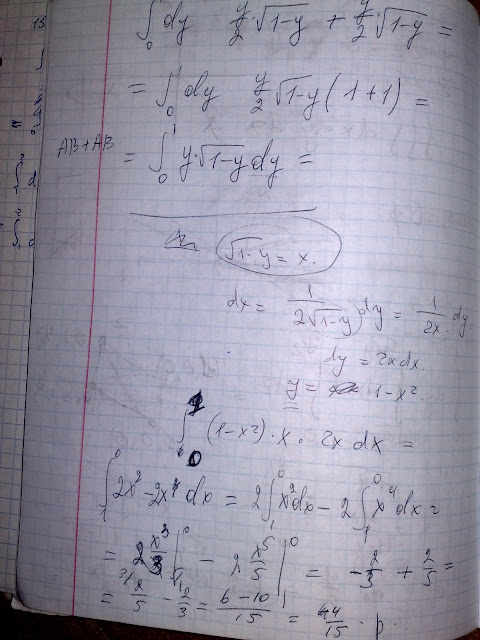 ∫₀ dy y/2 √1-y + y/2 √1-y =
= ∫₀¹ dy y/2 √1-y (1+1) =
AB+AB
= ∫₀¹ y·√1-y dy =
√1-y = x.
dx = 1/(2√1-y) dy = 1/2x · dy
dy = 2x dx.
y = 1-x².
(1-x²)·x·2x dx =
∫₁⁰ 2x²-2x⁴ dx = 2∫₁⁰ x² dx - 2∫₁⁰ x⁴ dx =
= 2 x³/3 |₁⁰ - 2 x⁵/5 |₁⁰ = -2/3 + 2/5 =
= 2/5 - 2/3 = (6-10)/15 = 4/15 · p.